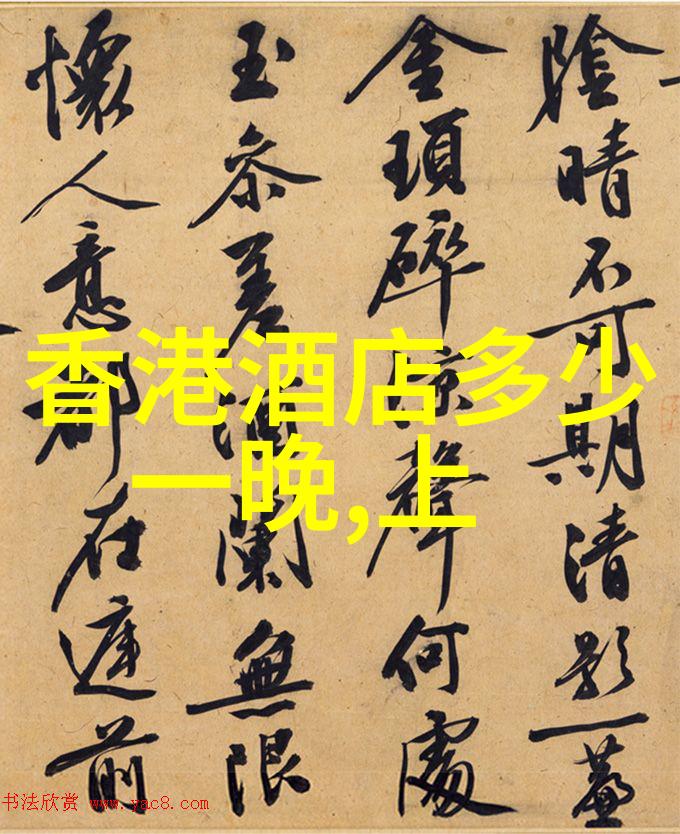 陰晴不可期清影一簾
金瑣碎涼聲何處
玉參差酒闌無限
懷人意都在庭前
香港酒店多少
一晚,上
书法欣赏 www.yac8.com